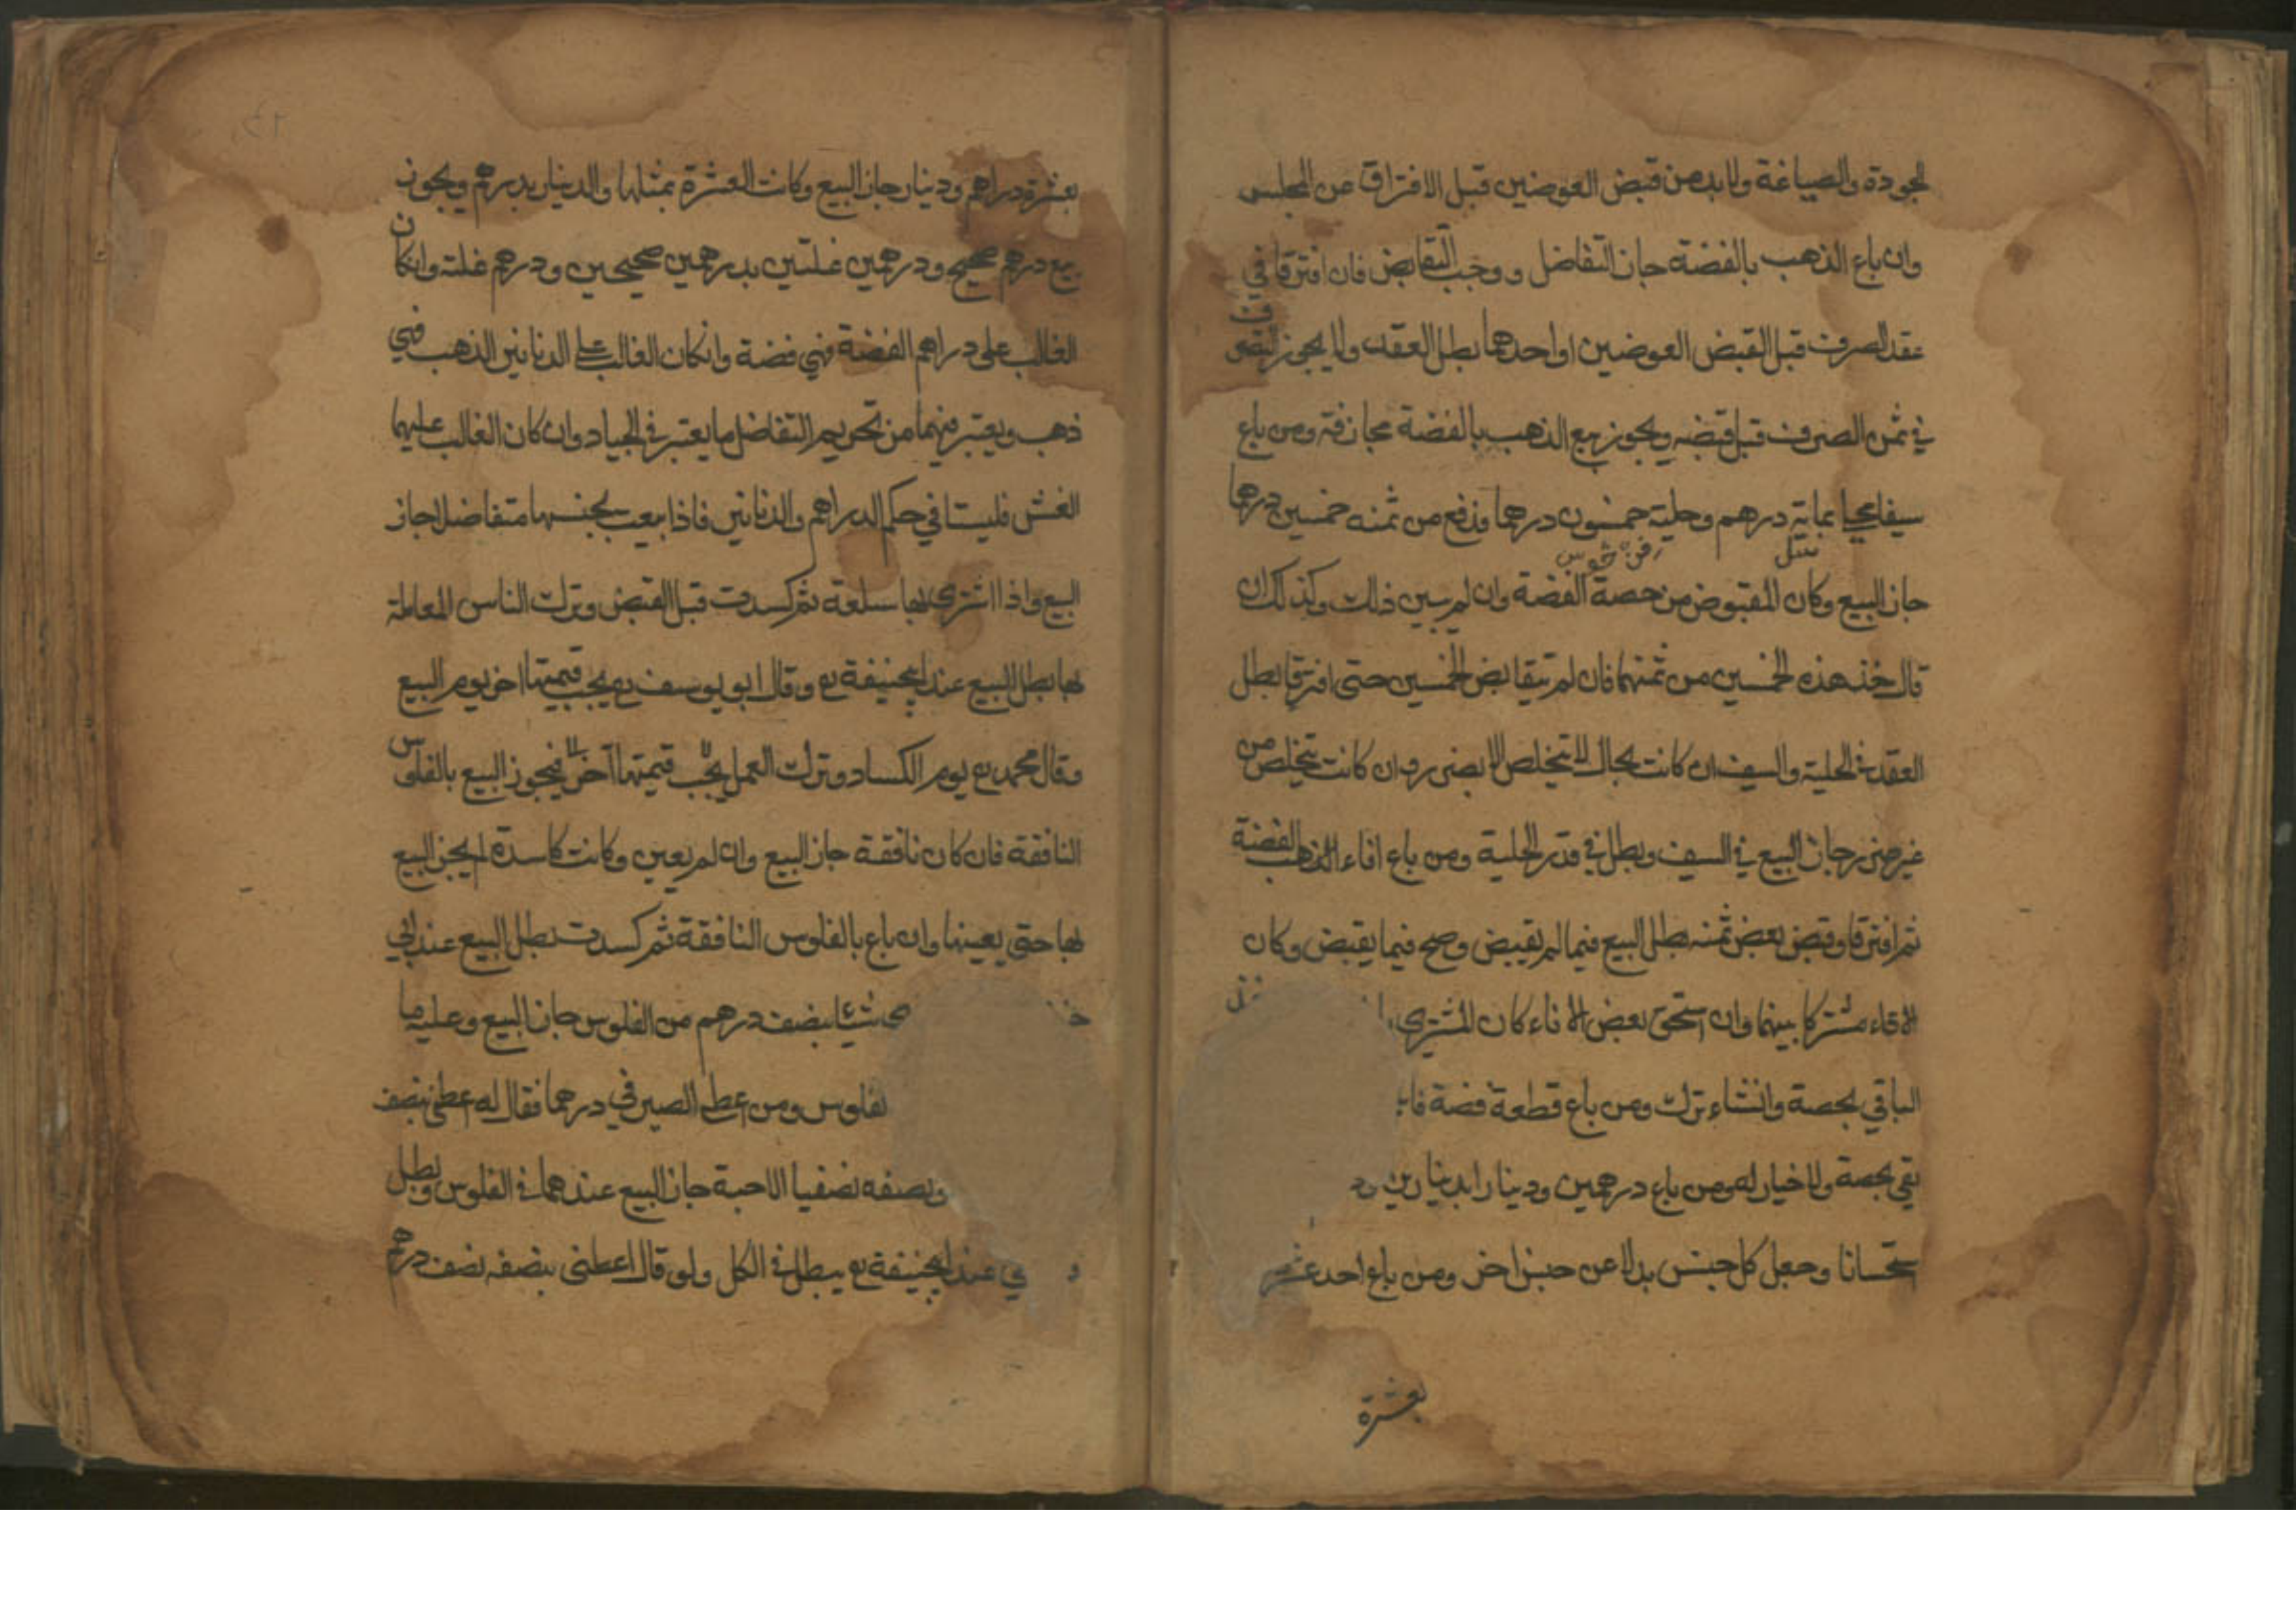 الجودة والصياغة ولا بد من قبض العوضين قبل الافتراق عن المجلس
وان باع الذهب بالفضة جاز التفاضل ووجب التقابض فان افترقا في
عقد الصرف قبل القبض العوضين او احدهما بطل العقد ولا يجوز التصرف
في ثمن الصرف قبل قبضه ويجوز بيع الذهب بالفضة مجازفة ومن باع
سيفا محليا بماية درهم وحلية خمسون درهما فدفع من ثمنه خمسين درهما
جاز البيع وكان المقبوض من حصة الفضة وان لم يبين ذلك وكذلك ان
قال خذ هذه الخمسين من ثمنهما فان لم يتقابض الخمسين حتى افترقا بطل
العقد في الحلية والسيف ان كانت بحال لا تتخلص الا بضرر وان كانت تتخلص من
غير ضرر جاز البيع في السيف وبطل في قدر الحلية ومن باع اناء الذهب الفضة
ثم افترقا وقبض بعض ثمنه بطل البيع فيما لم يقبض وصح فيما يقبض وكان
الاناء مشتركا بينهما وان استحق بعض الاناء كان المشتري
الباقي بحصة وانشاء ترك ومن باع قطعة فضة
بقي بحصة ولا خيار له ومن باع درهمين ودينارا بدينارين
ستحسانا وجعل كل جنس بدلا عن جنس اخر ومن باع احد عشر
بعشرة
بعشرة دراهم ودينار جاز البيع وكانت العشرة بمثلها والدينار بدرهم ويجوز
بيع درهم صحيح ودرهمين غلتين بدرهمين صحيحين ودرهم غلته وانكان
الغالب على دراهم الفضة فهي فضة وانكان الغالب على الدنانير الذهب فهي
ذهب ويعتبر فيهما من تحريم التفاضل ما يعتبر في الجياد وان كان الغالب عليهما
الغش فليستا في حكم الدراهم والدنانير فاذا بيعت بجنسها متفاضلا جاز
البيع واذا اشترى بها سلعة ثم كسدت قبل القبض وترك الناس المعاملة
بها بطل البيع عند ابيحنيفة رح وقال ابو يوسف رح يجب قيمتها اخر يوم البيع
وقال محمد رح يوم الكساد وترك العمل يجب قيمتها آخر فيجوز البيع بالفلوس
النافقة فان كان نافقة جاز البيع وان لم يعين وكانت كاسدة لم يجز البيع
بها حتى يعينها وان باع بالفلوس النافقة ثم كسدت بطل البيع عند ابي
شيئا بنصف درهم من الفلوس جاز البيع وعليه ما
لفلوس ومن اعطى الصيرفي درهما فقال له اعطني بنصف
وبصفه نصفيا الا حبة جاز البيع عندهما في الفلوس وبطل
عند ابيحنيفة رح يبطل في الكل ولو قال اعطني بنصفه نصف درهم